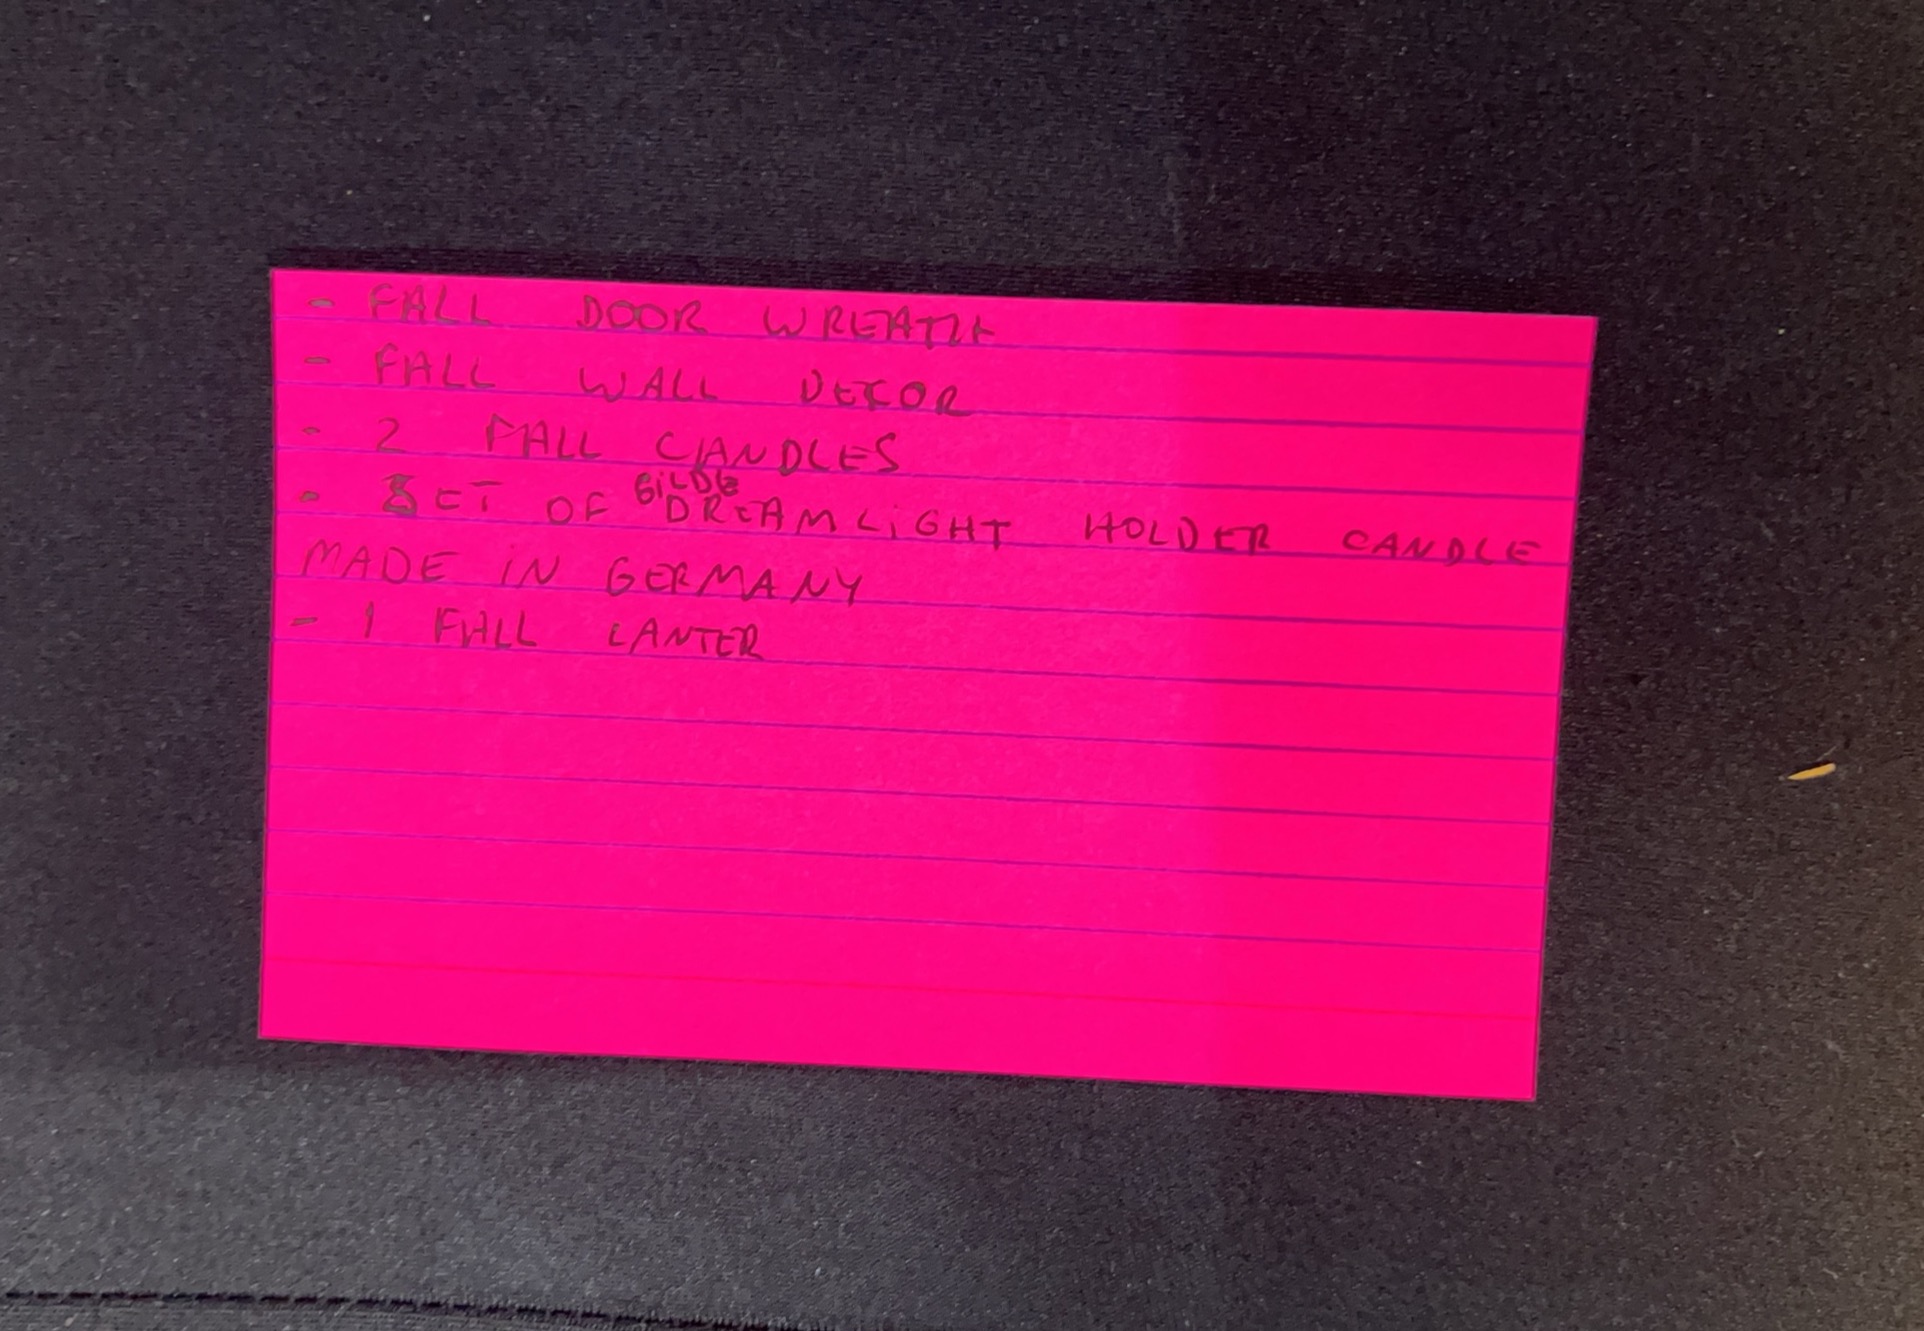 - FALL DOOR WREATH
- FALL WALL DECOR
- 2 FALL CANDLES
- SET OF GILDE DREAMLIGHT HOLDER CANDLE
MADE IN GERMANY
- 1 FALL LANTER